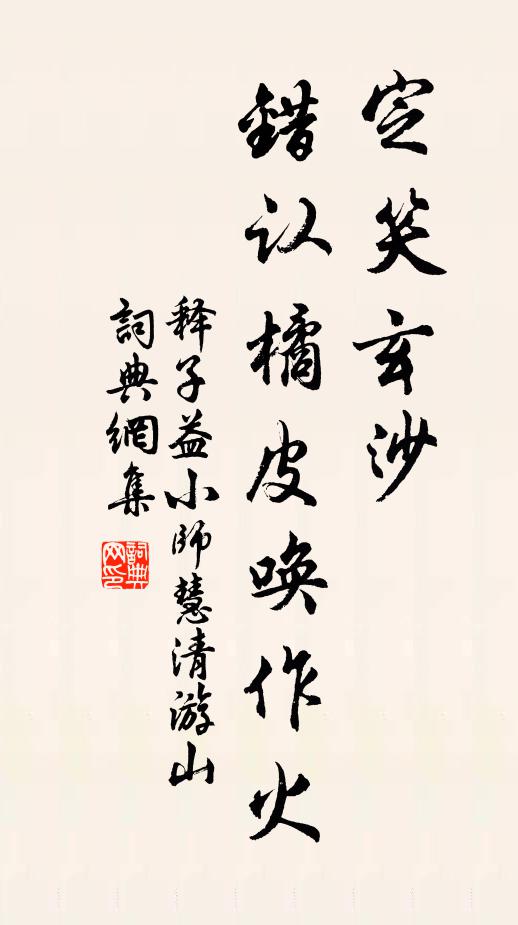 定笑玄沙
錯认橘皮唤作火
释子益小师慧清游山
詞典網集
詞典网印